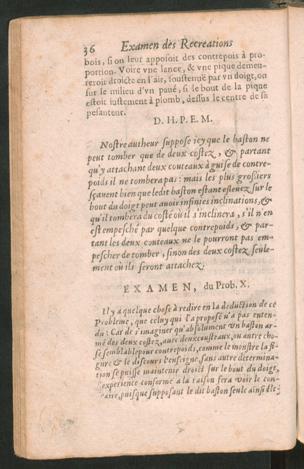 36 Examen des Recreations
bois, si on leur apposoit des contrepois à pro-
portion. Voire vne lance, & vne pique demeu-
reroit droicte en l'air, soustenuë par vn doigt, ou
sur le milieu d'vn paué, si le bout de la pique
estoit iustement à plomb, dessus le centre de sa
pesanteur.
D. H. P. E. M.
Nostre autheur suppose icy que le baston ne
peut tomber que de deux costez, & partant
qu'y attachant deux couteaux à guise de contre-
poids il ne tombera pas : mais les plus grossiers
sçauent bien que ledit baston estant esleué sur le
bout du doigt peut auoir infinies inclinations, &
qu'il tombera du costé où il s'inclinera, s'il n'en
est empesché par quelque contrepoids, & par-
tant les deux couteaux ne le pourront pas em-
pescher de tomber, sinon des deux costez seule-
ment où ils seront attachez.
EXAMEN, du Prob. X.
Il y a quelque chose à redire en la deduction de ce
Probleme, que celuy qui l'a proposé n'a pas enten-
du : Car de s'imaginer qu'absolument vn baston ar-
mé des deux costez, auec deux couteaux, ou autre cho-
se semblable pour contrepoids, comme le monstre la fi-
gure & le discours l'enseigne, sans autre determina-
tion se puisse maintenir droict sur le bout du doigt,
l'experience conforme a la raison fera voir le con-
traire, puisque supposant le dit baston seule ainsi